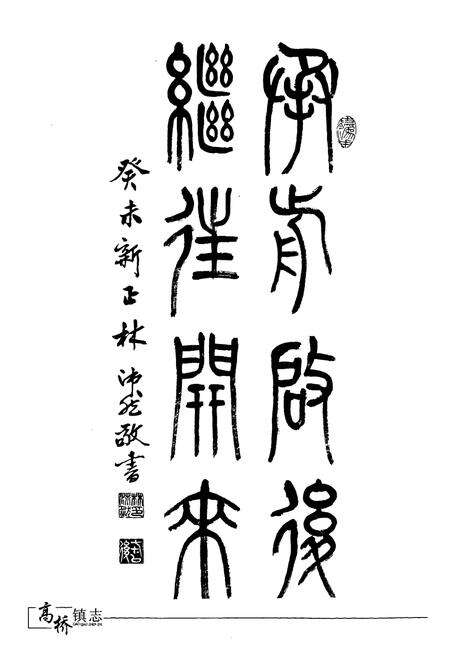 承前啟後
繼往開來
癸未新正林沛然敬書
高桥镇志
GAO QIAO ZHEN ZHI